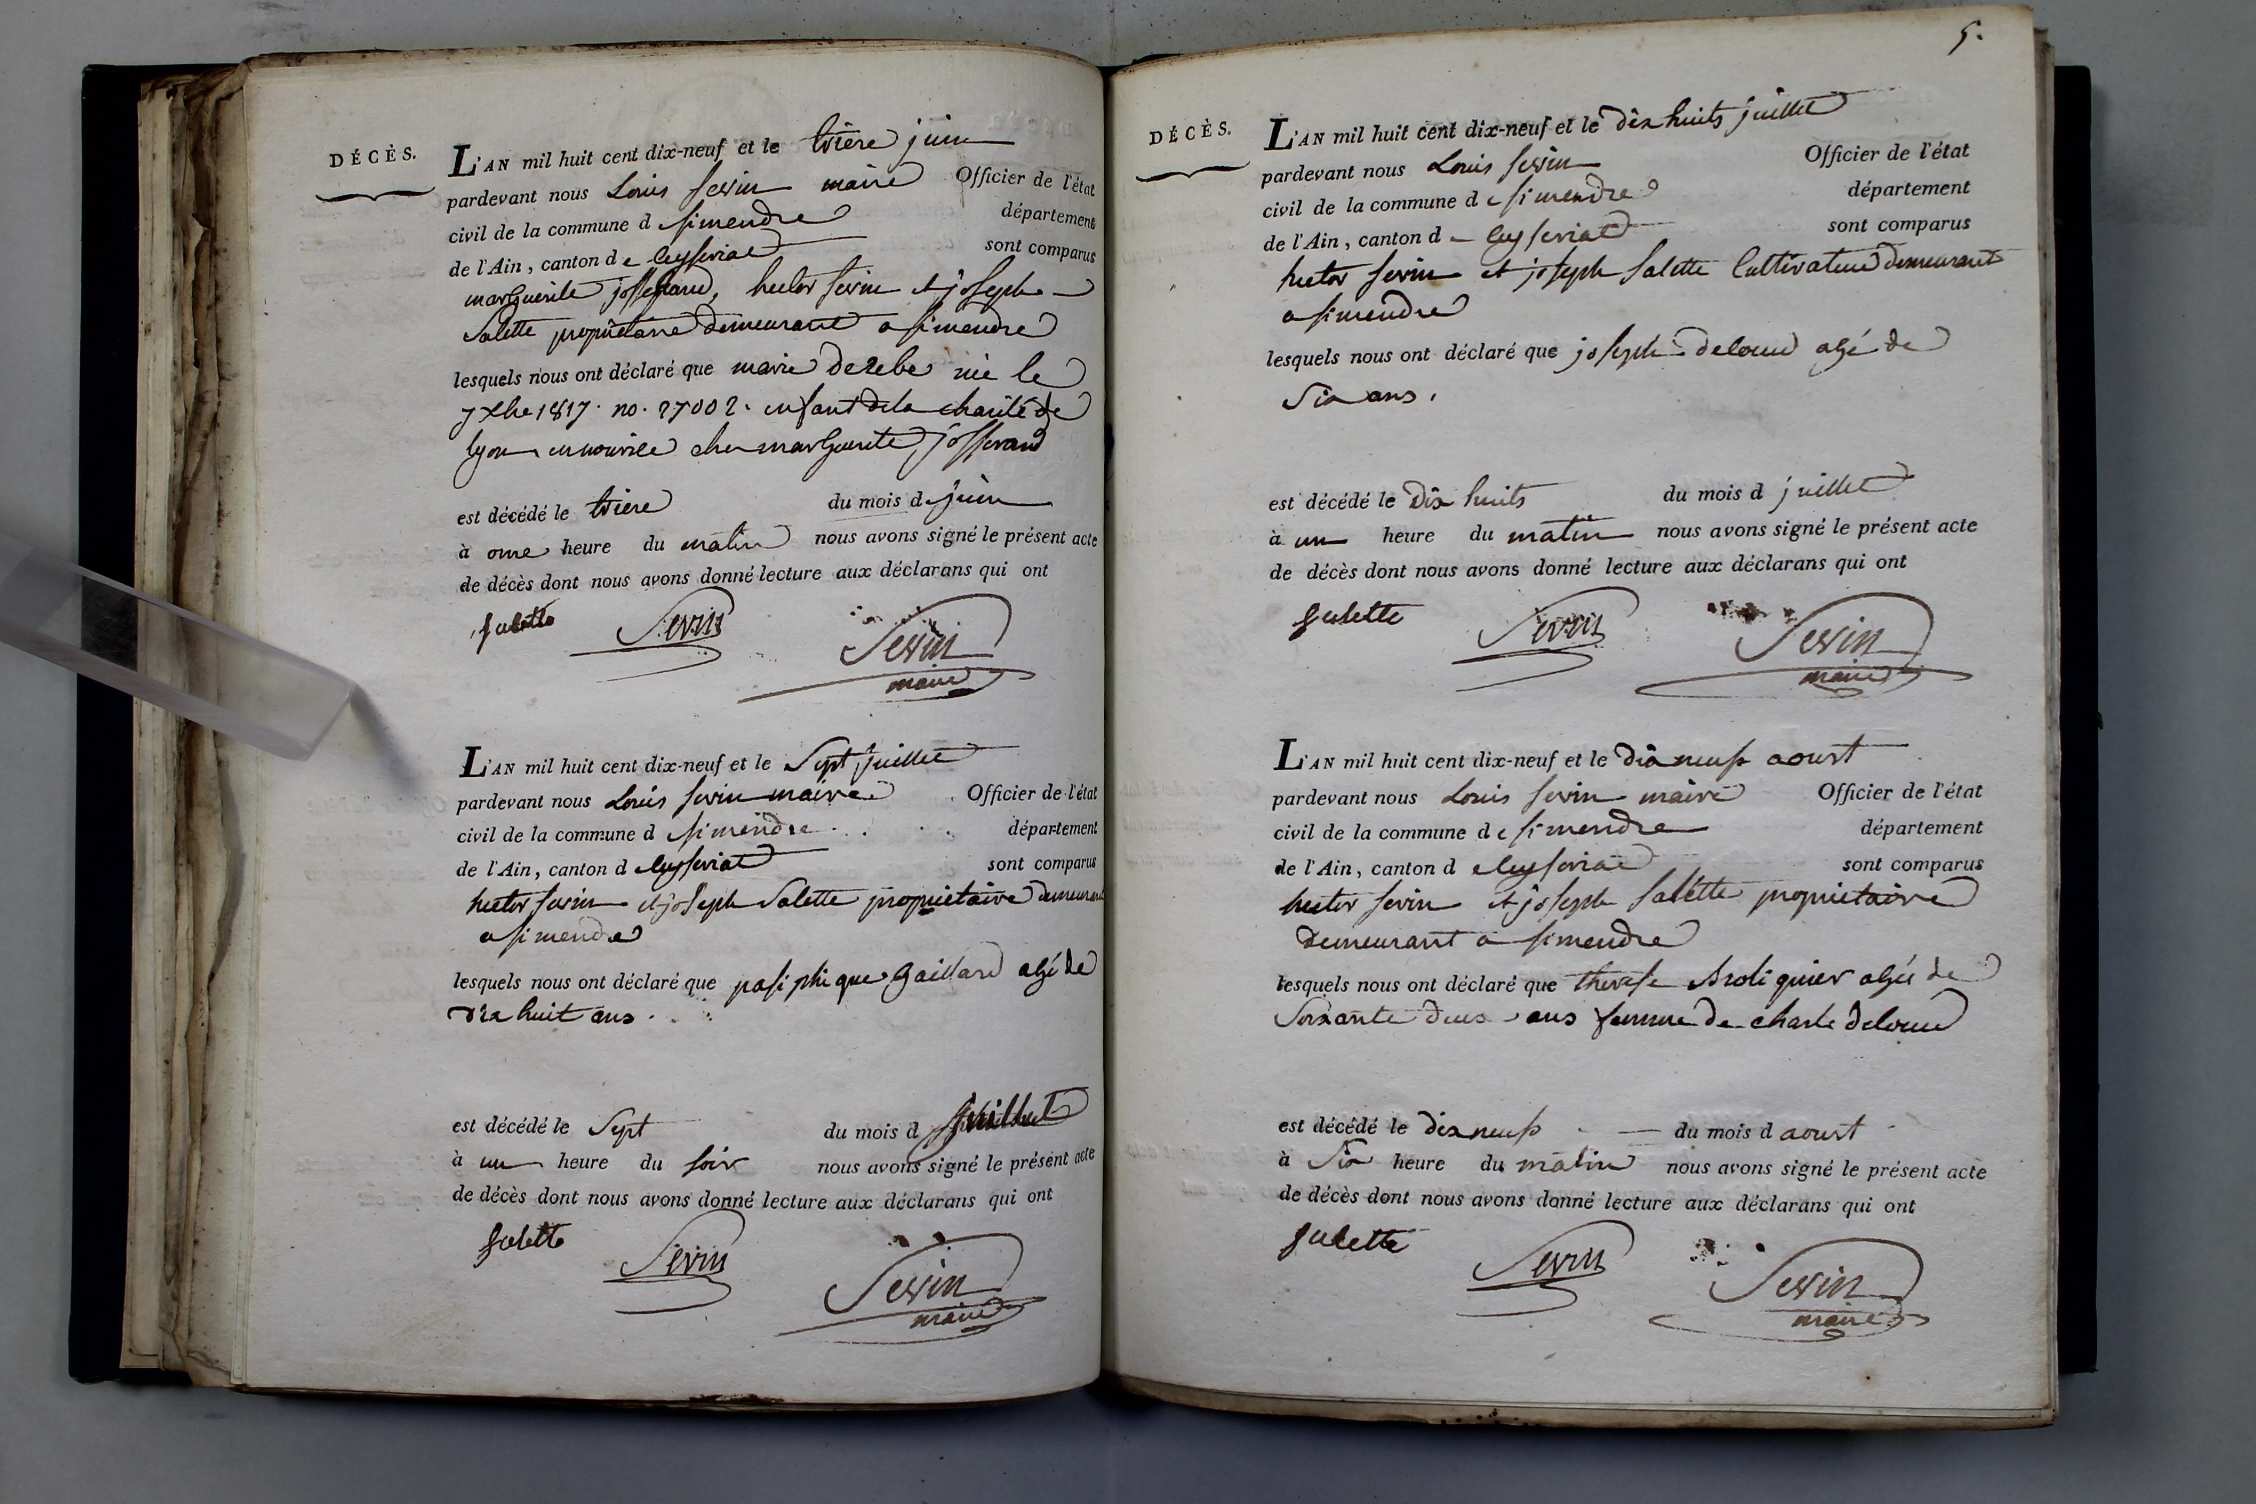 DÉCÈS.
L'AN mil huit cent dix-neuf et le trière juin
pardevant nous Louis sevin maire Officier de l'état
civil de la commune d simendre département
de l'Ain, canton de Ceyseriat sont comparus
marguerite josserand, hector sevin et joseph
Salette propriétaire demeurant a simendre
lesquels nous ont déclaré que marie née le
7 xbre 1817. no. 27002. enfant de la charité de
lyon en nourice cher marguerite josserand
est décédé le trière du mois de juin
à onze heure du matin nous avons signé le présent acte
de décès dont nous avons donné lecture aux déclarans qui ont
Salette Sevin Sevin
maire
L'AN mil huit cent dix-neuf et le Sept juillet
pardevant nous Louis sevin maire Officier de l'état
civil de la commune d simendre département
de l'Ain, canton d Ceyseriat sont comparus
hector sevin et joseph Salette propriétaire demeurant
a simendre
lesquels nous ont déclaré que pasiphique Gaillard agé de
dix huit ans.
est décédé le Sept du mois d juillet
à un heure du soir nous avons signé le présent acte
de décès dont nous avons donné lecture aux déclarans qui ont
Salette Sevin Sevin
maire
5.
DÉCÈS.
L'AN mil huit cent dix-neuf et le dix huits juillet
pardevant nous Louis sevin Officier de l'état
civil de la commune de simendre département
de l'Ain, canton de Ceyseriat sont comparus
hector sevin et joseph Salette Cultivateur demeurant
a simendre
lesquels nous ont déclaré que joseph deloum agé de
Six ans.
est décédé le Dix huits du mois d juillet
à un heure du matin nous avons signé le présent acte
de décès dont nous avons donné lecture aux déclarans qui ont
Salette Sevin Sevin
maire
L'AN mil huit cent dix-neuf et le dix neuf aoust
pardevant nous Louis sevin maire Officier de l'état
civil de la commune de simendre département
de l'Ain, canton d Ceyseriat sont comparus
hector sevin et joseph Salette propriétaire
demeurant a simendre
lesquels nous ont déclaré que therese Broliquier agée de
Soixante deux ans femme de charle deloum
est décédé le dix neuf du mois d aoust
à Six heure du matin nous avons signé le présent acte
de décès dont nous avons donné lecture aux déclarans qui ont
Salette Sevin Sevin
maire